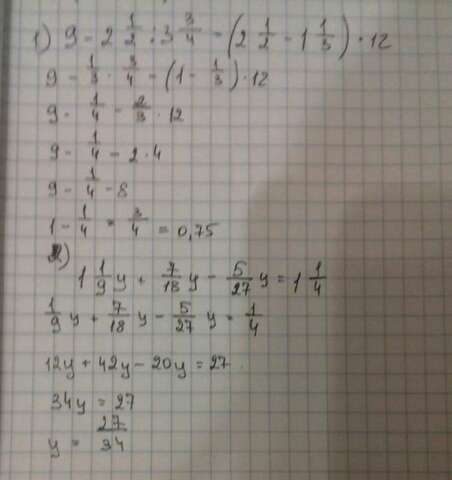 1) 9 - 2 1/2 : 3 3/4 - (2 1/2 - 1 1/3) · 12
9 - 1/3 · 3/4 - (1 - 1/3) · 12
9 - 1/4 - 2/3 · 12
9 - 1/4 - 2 · 4
9 - 1/4 - 8
1 - 1/4 = 3/4 = 0,75
2)
1 1/9 y + 7/18 y - 5/27 y = 1 1/4
1/9 y + 7/18 y - 5/27 y = 1/4
12y + 42y - 20y = 27
34y = 27
y = 27/34